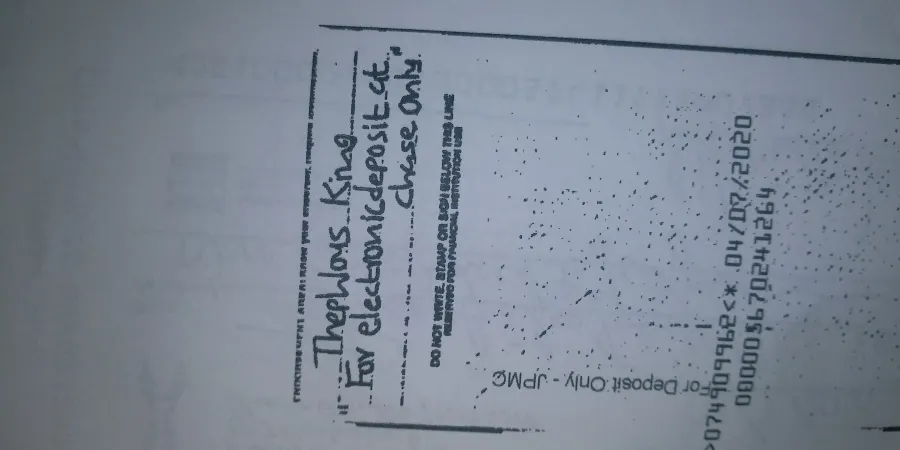 ENDORSEMENT AREA:
Thephlous King
"For electronic deposit at
chase only"
DO NOT WRITE, STAMP OR SIGN BELOW THIS LINE
RESERVED FOR FINANCIAL INSTITUTION USE
For Deposit Only - JPMC
>074909962<* 04/07/2020
000005670241264